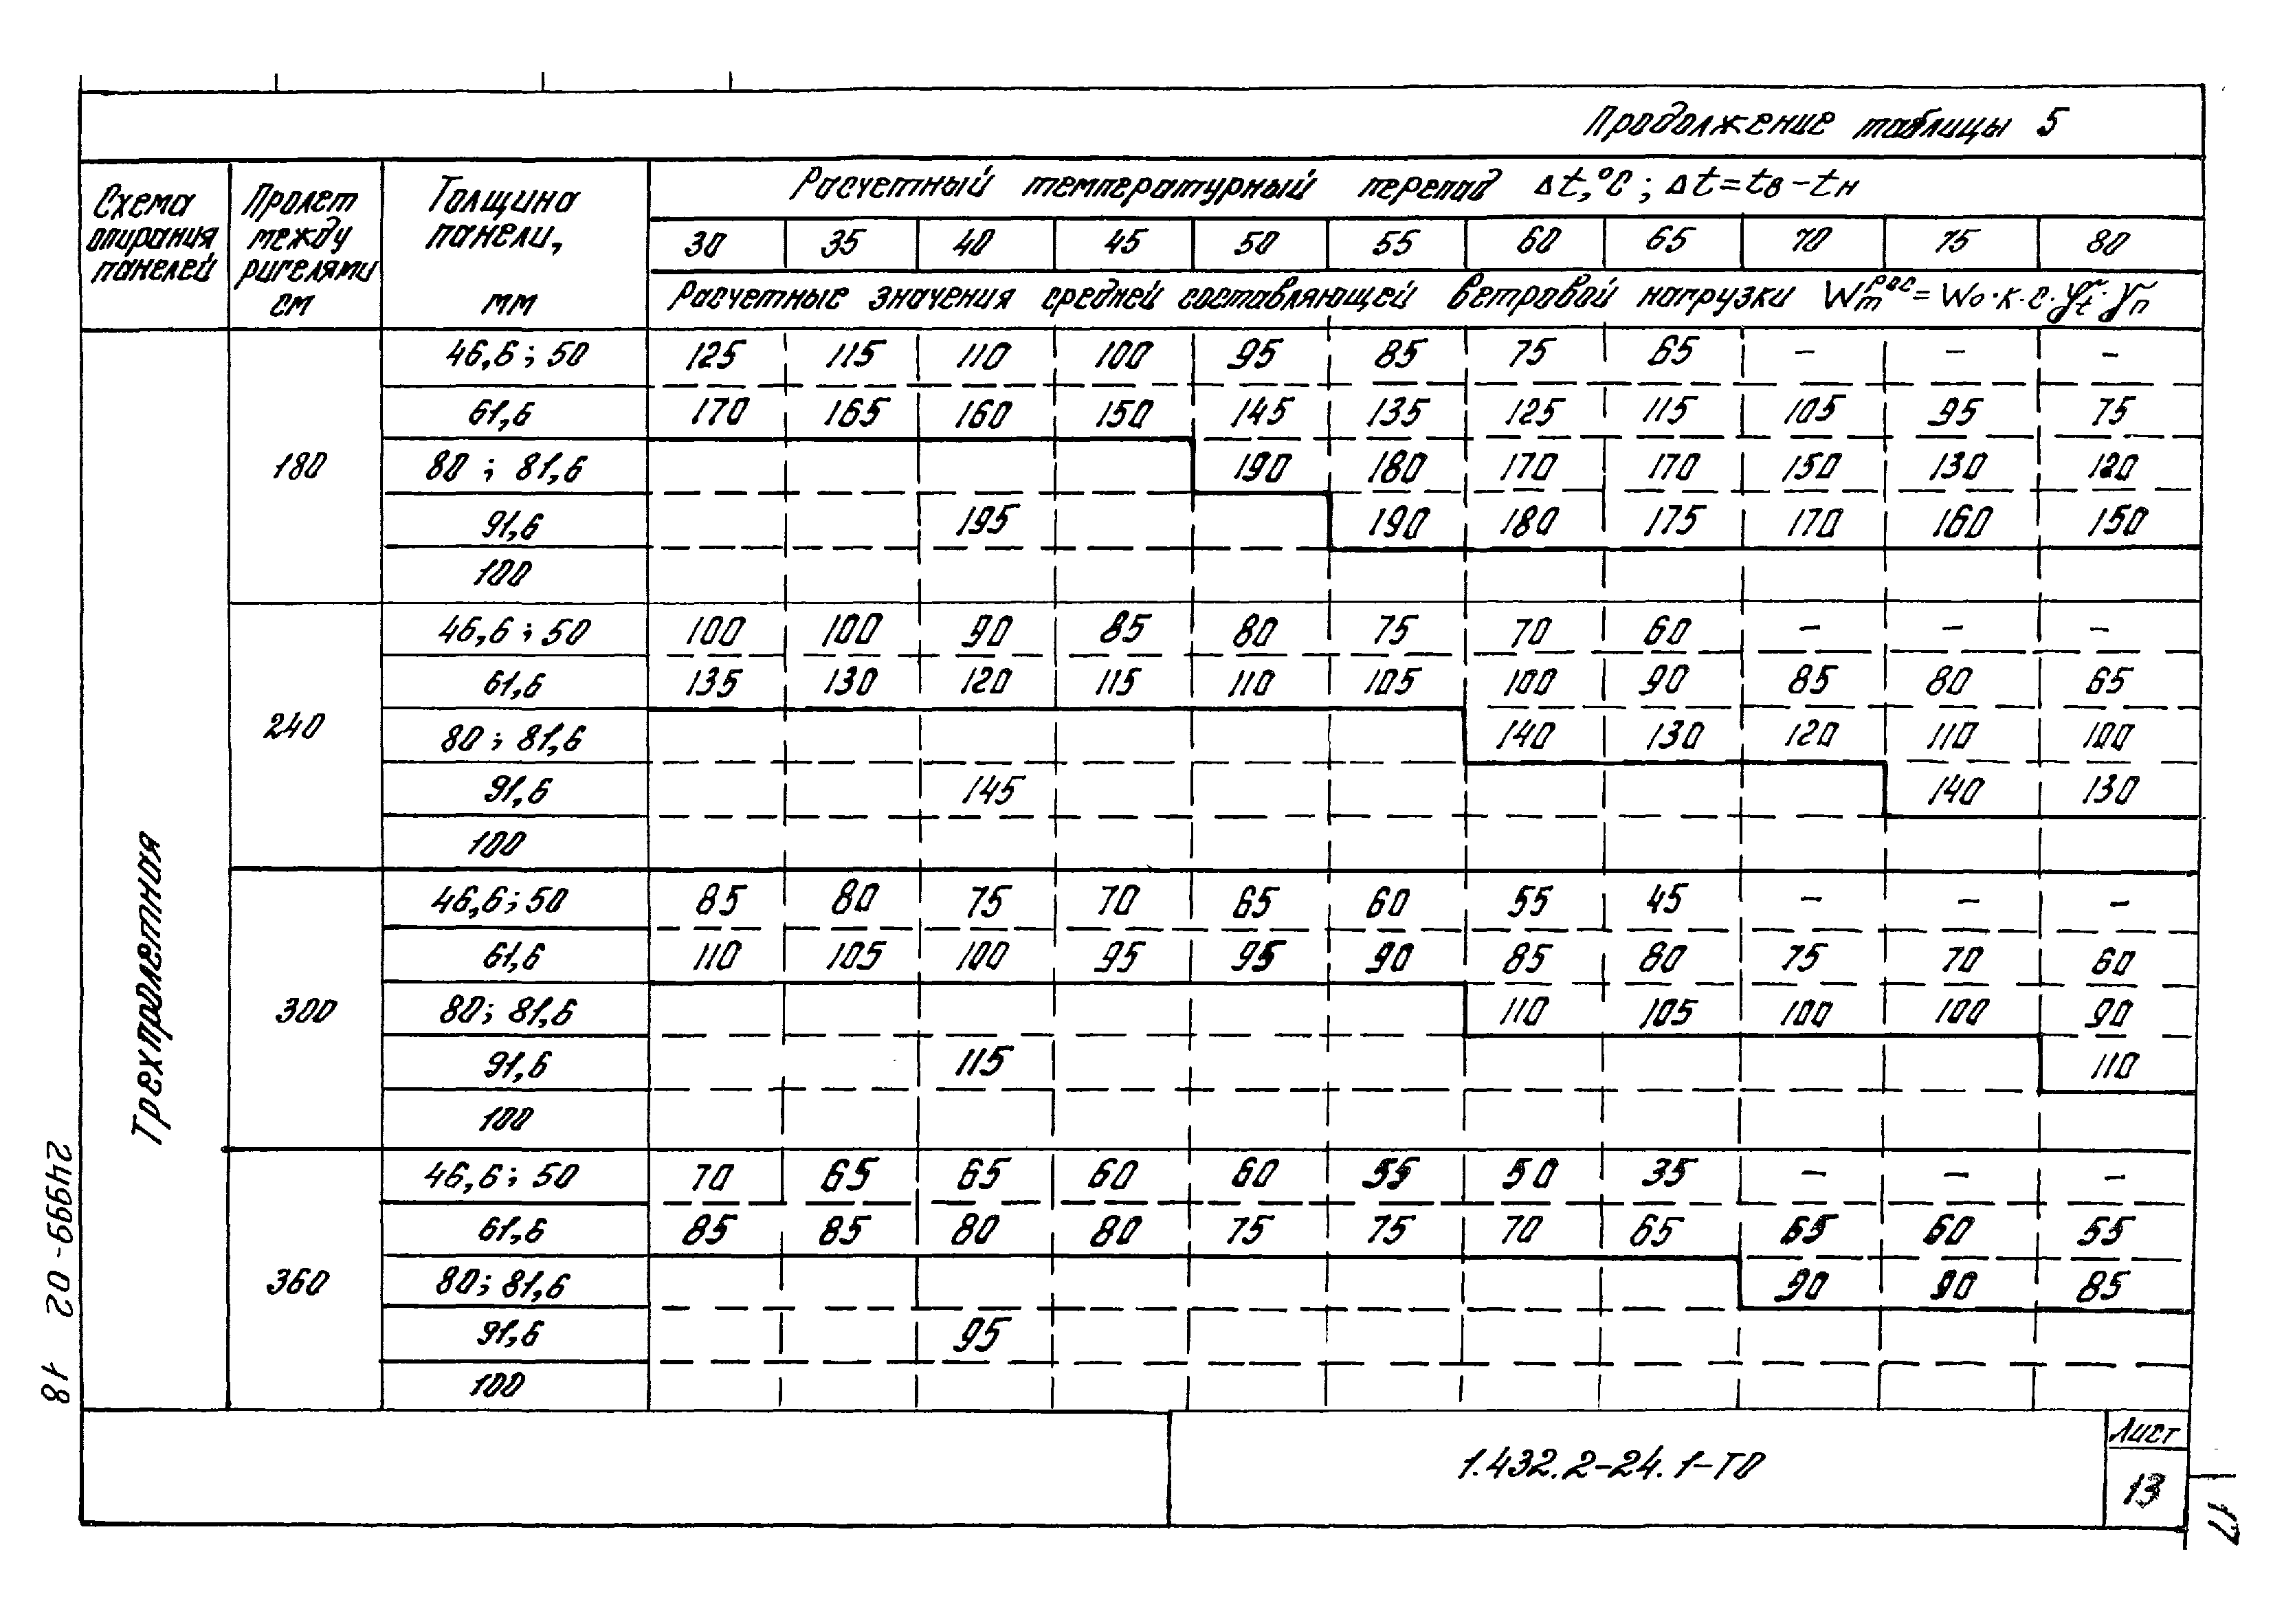 Продолжение таблицы 5
Схема опирания панелей
Пролет между ригелями см
Толщина панели, мм
Расчетный температурный перепад Δt,°C ; Δt=tв-tн
30 35 40 45 50 55 60 65 70 75 80
Расчетные значения средней составляющей ветровой нагрузки Wm рас = Wo·к·с·γt·γn
Трехпролетная
180
46,6 ; 50 125 115 110 100 95 85 75 65 - - -
61,6 170 165 160 150 145 135 125 115 105 95 75
80 ; 81,6 190 180 170 170 150 130 120
91,6 195 190 180 175 170 160 150
100
240
46,6 ; 50 100 100 90 85 80 75 70 60 - - -
61,6 135 130 120 115 110 105 100 90 85 80 65
80 ; 81,6 140 130 120 110 100
91,6 145 140 130
100
300
46,6 ; 50 85 80 75 70 65 60 55 45 - - -
61,6 110 105 100 95 95 90 85 80 75 70 60
80; 81,6 110 105 100 100 90
91,6 115 110
100
360
46,6 ; 50 70 65 65 60 60 55 50 35 - - -
61,6 85 85 80 80 75 75 70 65 65 60 55
80; 81,6 90 90 85
91,6 95
100
1.432.2-24.1-ТО
Лист
13
24999-02 18
17